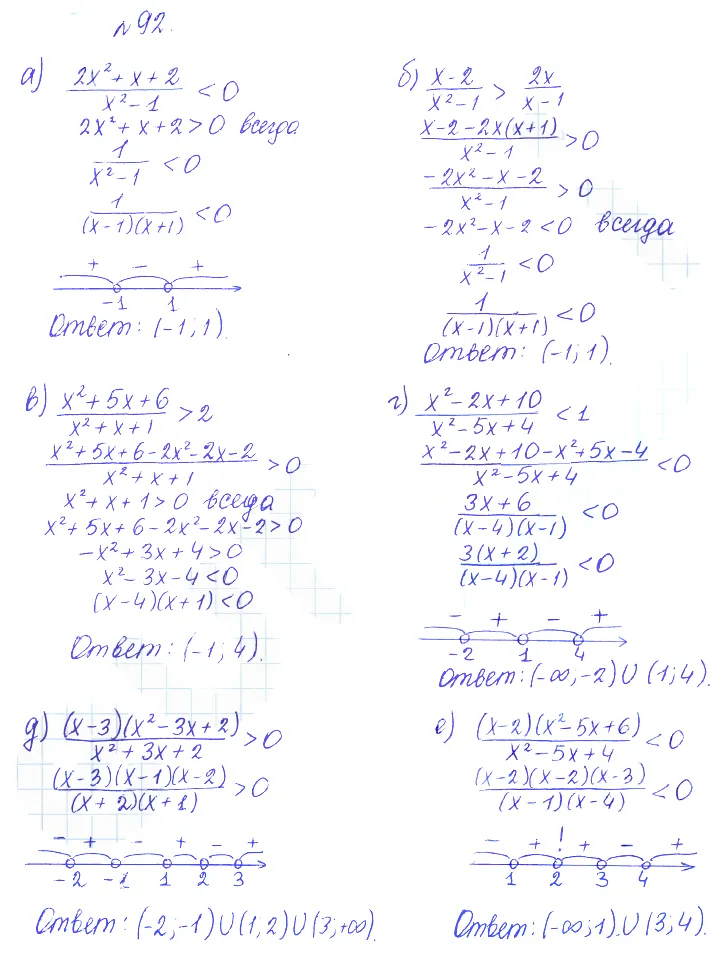 №92.
а) (2x²+x+2)/(x²-1) < 0
2x²+x+2>0 всегда
1/(x²-1) < 0
1/((x-1)(x+1)) < 0
+ - +
-1 1
Ответ: (-1; 1).
б) (x-2)/(x²-1) > 2x/(x-1)
(x-2-2x(x+1))/(x²-1) > 0
(-2x²-x-2)/(x²-1) > 0
-2x²-x-2<0 всегда
1/(x²-1) < 0
1/((x-1)(x+1)) < 0
Ответ: (-1; 1).
в) (x²+5x+6)/(x²+x+1) > 2
(x²+5x+6-2x²-2x-2)/(x²+x+1) > 0
x²+x+1>0 всегда
x²+5x+6-2x²-2x-2>0
-x²+3x+4>0
x²-3x-4<0
(x-4)(x+1)<0
Ответ: (-1; 4).
г) (x²-2x+10)/(x²-5x+4) < 1
(x²-2x+10-x²+5x-4)/(x²-5x+4) < 0
(3x+6)/((x-4)(x-1)) < 0
(3(x+2))/((x-4)(x-1)) < 0
- + - +
-2 1 4
Ответ: (-∞; -2) U (1; 4).
д) ((x-3)(x²-3x+2))/(x²+3x+2) > 0
((x-3)(x-1)(x-2))/((x+2)(x+1)) > 0
- + - + - +
-2 -1 1 2 3
Ответ: (-2; -1) U (1, 2) U (3; +∞).
е) ((x-2)(x²-5x+6))/(x²-5x+4) < 0
((x-2)(x-2)(x-3))/((x-1)(x-4)) < 0
- + ! + - +
1 2 3 4
Ответ: (-∞; 1). U (3; 4).